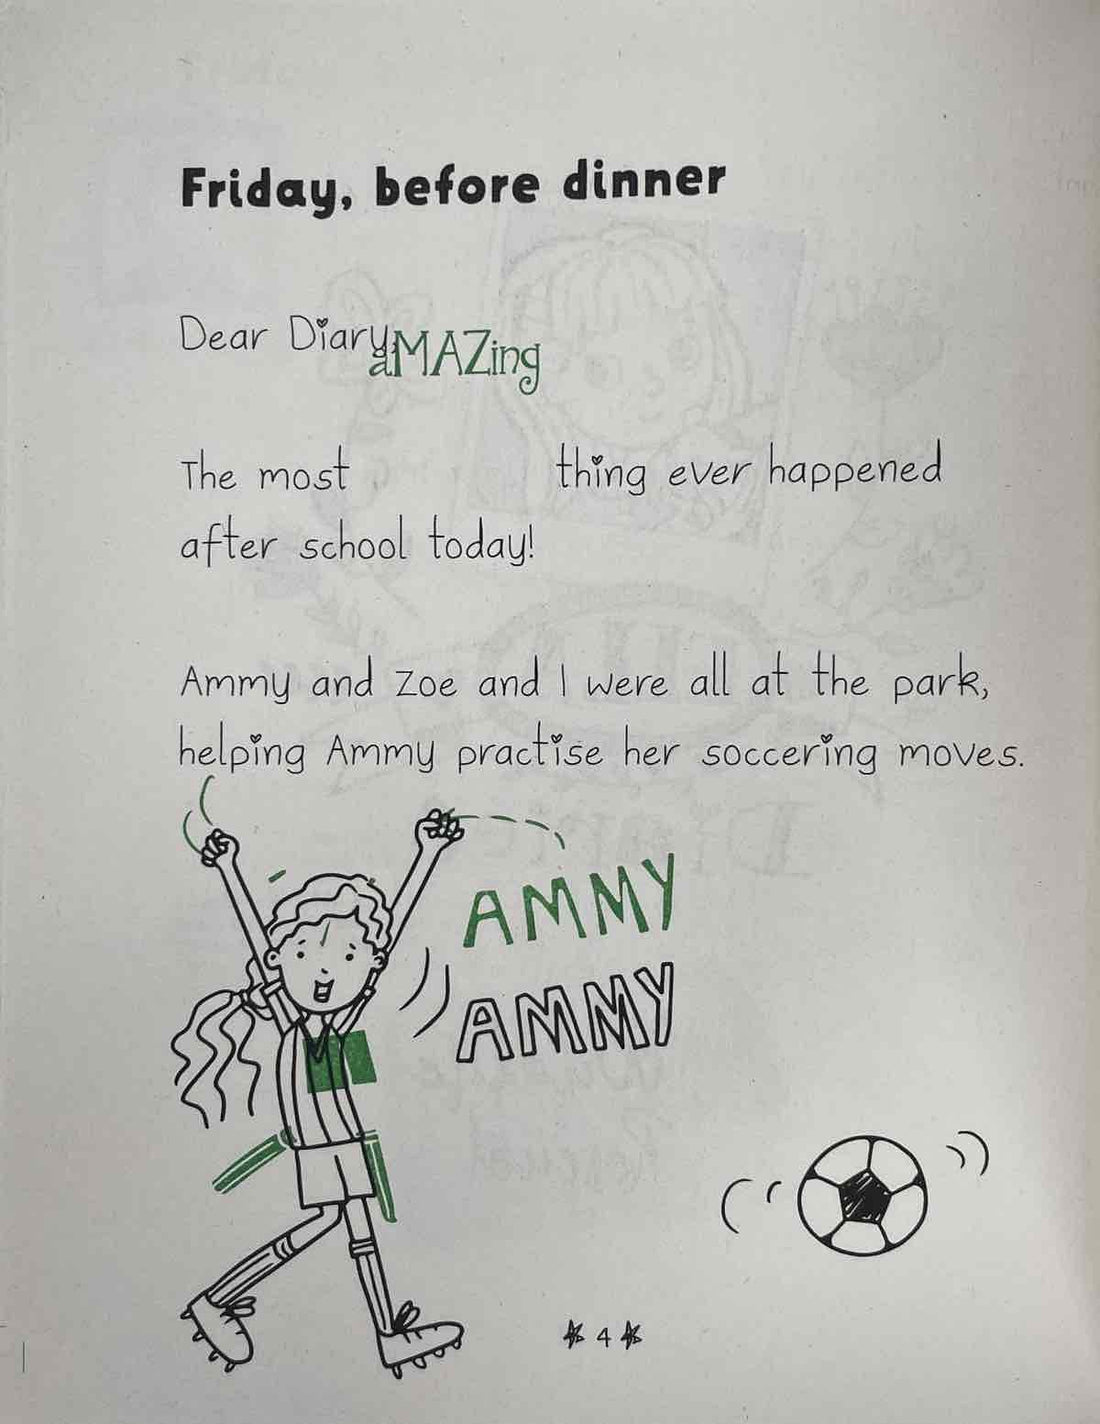 Friday, before dinner
Dear Diary,
aMAZing
The most thing ever happened
after school today!
Ammy and Zoe and I were all at the park,
helping Ammy practise her soccering moves.
AMMY
AMMY
4